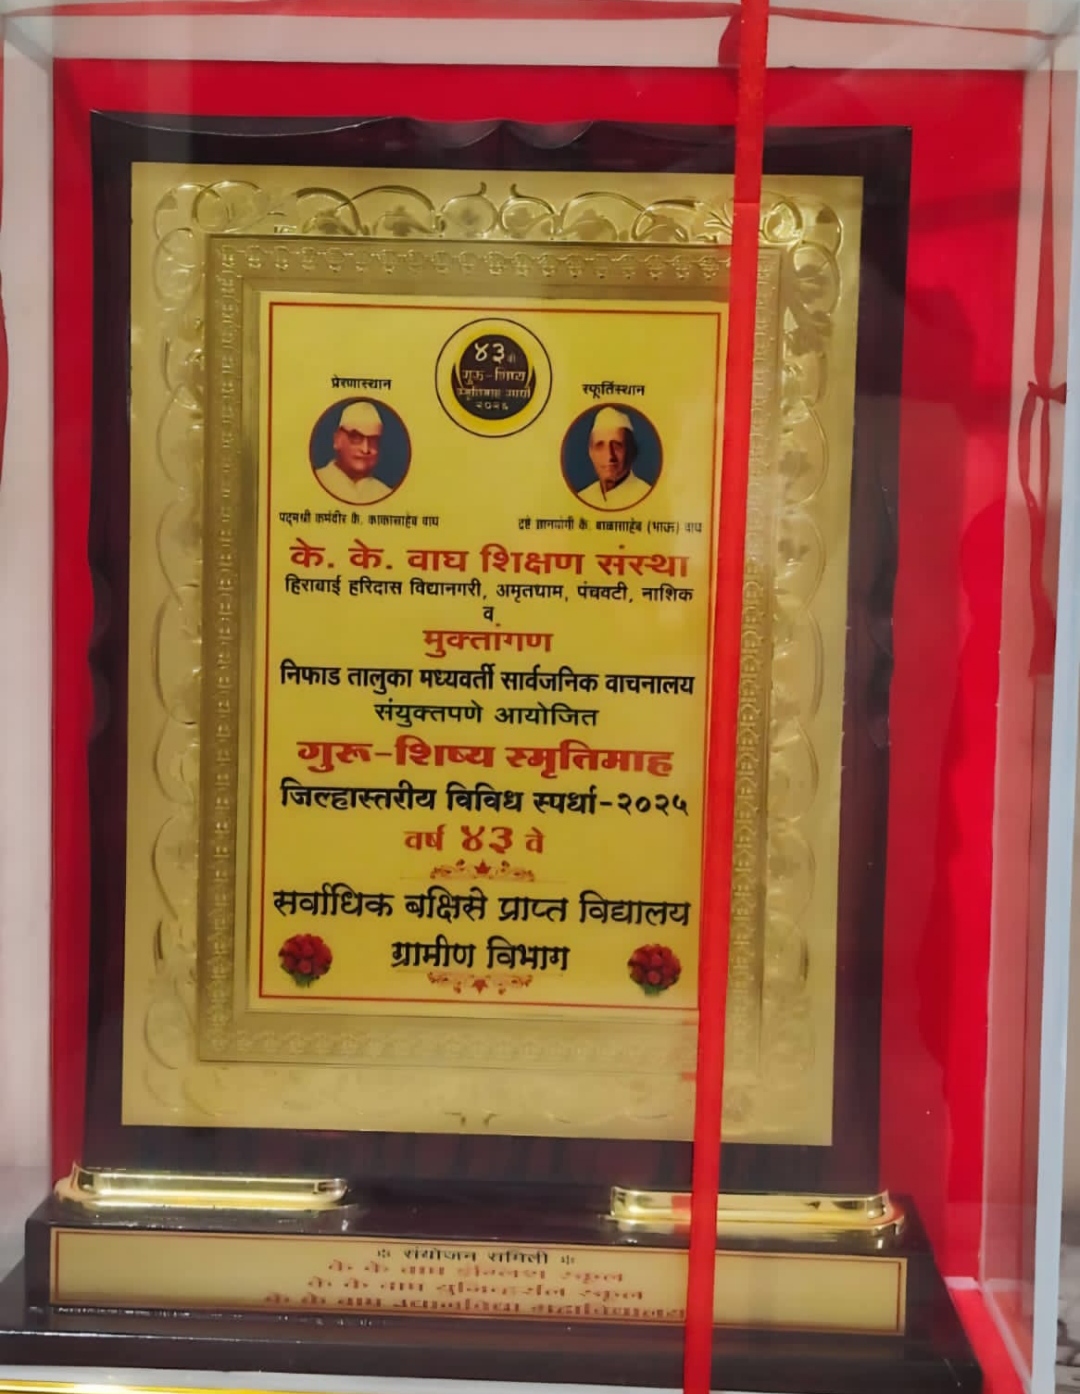 ४३ वी
गुरू-शिष्य
प्रेरणास्थान
स्फूर्तिस्थान
पद्मश्री कर्मवीर कै. काकासाहेब वाघ
द्रष्टे ज्ञानयोगी कै. बाळासाहेब (भाऊ) वाघ
के. के. वाघ शिक्षण संस्था
हिराबाई हरिदास विद्यानगरी, अमृतधाम, पंचवटी, नाशिक
व
मुक्तांगण
निफाड तालुका मध्यवर्ती सार्वजनिक वाचनालय
संयुक्तपणे आयोजित
गुरू-शिष्य स्मृतिमाह
जिल्हास्तरीय विविध स्पर्धा-२०२५
वर्ष ४३ वे
सर्वाधिक बक्षिसे प्राप्त विद्यालय
ग्रामीण विभाग
संयोजन समिती
के के वाघ इंग्लिश स्कूल
के के वाघ युनिव्हर्सल स्कूल
के के वाघ